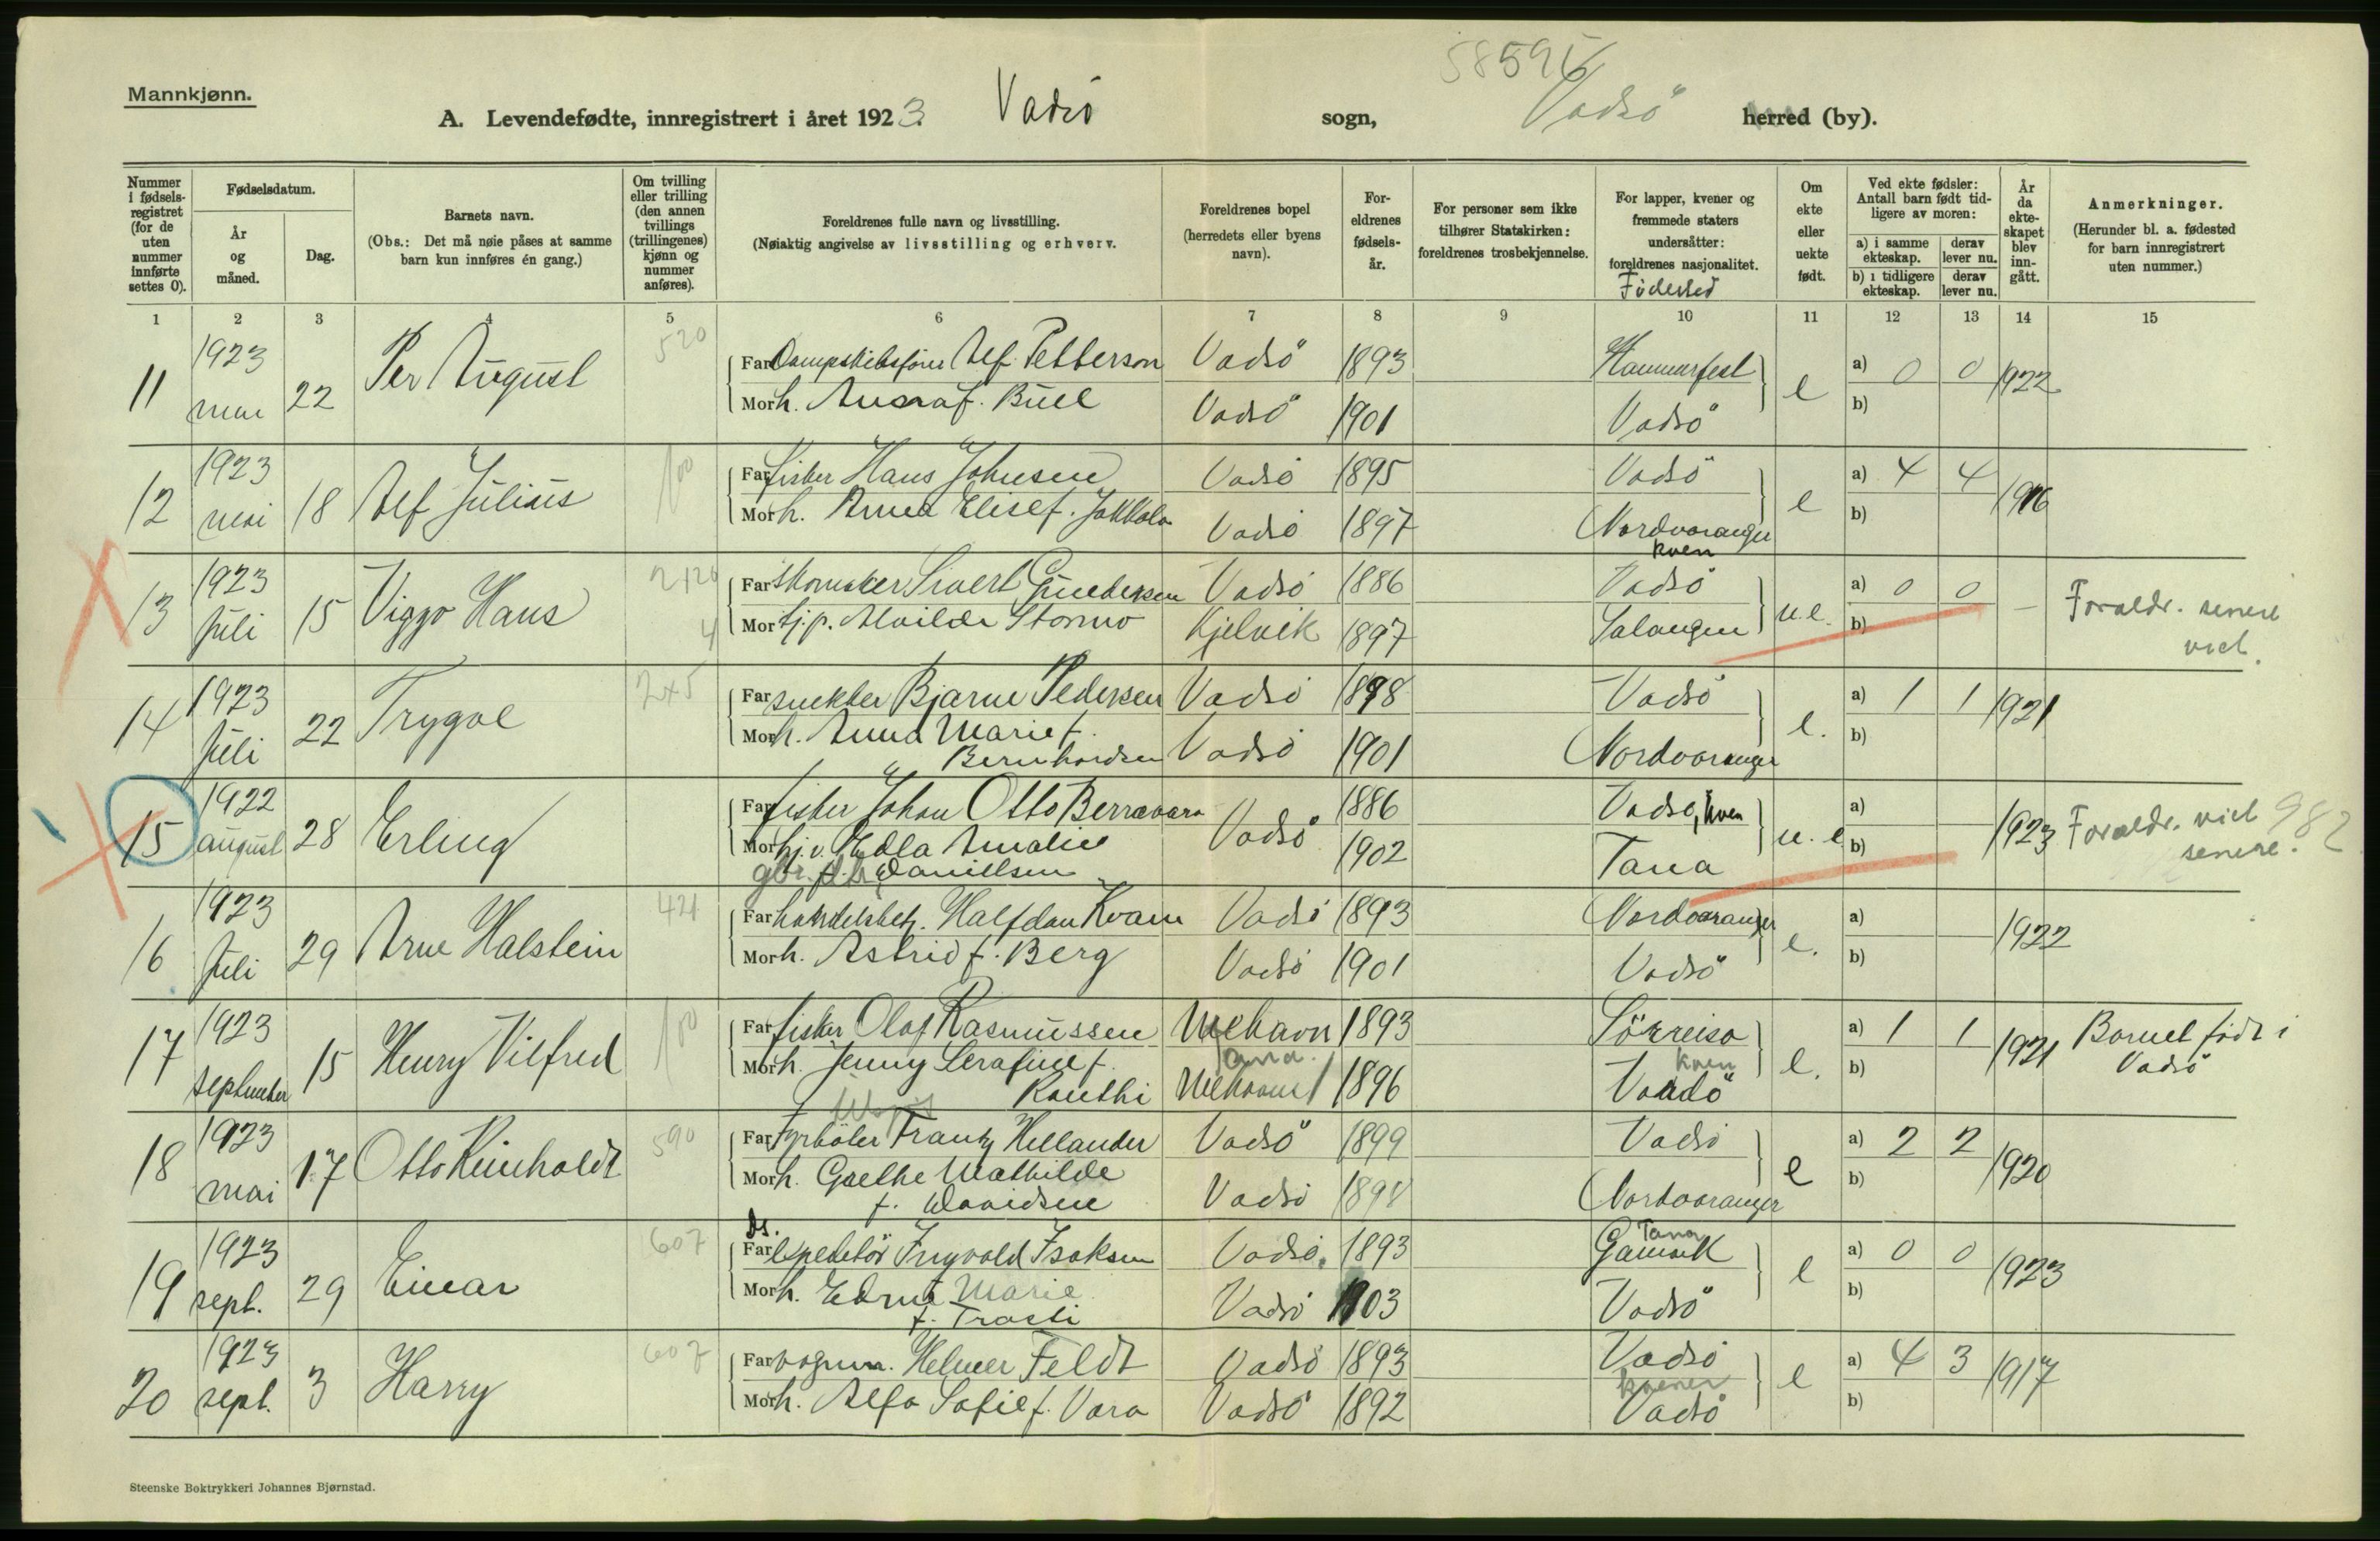 58595
Mannkjønn.
A. Levendefødte, innregistrert i året 1923. Vadsö sogn, Vadsö herred (by).
Nummer i fødsels-registret (for de uten nummer innførte settes 0).
Fødselsdatum.
År og måned.
Dag.
Barnets navn.
(Obs.: Det må nøie påses at samme barn kun innføres én gang.)
Om tvilling eller trilling (den annen tvillings (trillingenes) kjønn og nummer anføres).
Foreldrenes fulle navn og livsstilling.
(Nøiaktig angivelse av livsstilling og erhverv.
Foreldrenes bopel (herredets eller byens navn).
For-eldrenes fødsels-år.
For personer som ikke tilhører Statskirken: foreldrenes trosbekjennelse.
For lapper, kvener og fremmede staters undersåtter: foreldrenes nasjonalitet.
Födested
Om ekte eller uekte født.
Ved ekte fødsler: Antall barn født tid-ligere av moren:
a) i samme ekteskap.
derav lever nu.
b) i tidligere ekteskap.
derav lever nu.
År da ekte-skapet blev inn-gått.
Anmerkninger.
(Herunder bl. a. fødested for barn innregistrert uten nummer.)
1 2 3 4 5 6 7 8 9 10 11 12 13 14 15
11 1923 mai 22 Per August 520
Far Dampskibsfører Alf Petterson Vadsö 1893 Hammerfest e a) 0 0 1922
Mor h. f. Buel Vadsö 1901 Vadsö b)
12 1923 mai 18 Alf Julius 100
Far fisker Hans Johnsen Vadsö 1895 Vadsö e a) 4 4 1916
Mor h. Anna Elise f. Jakkola Vadsö 1897 Nordvaranger b)
kven
13 1923 Juli 15 Viggo Hans
Far skomaker Sivert Gundersen Vadsö 1886 Vadsö u.e. a) 0 0 — Foraeldr. senere viet.
Mor tj.p. Alvilde Stormo Kjelvik 1897 Salangen b)
14 1923 Juli 22 Trygve 2x5
Far snekker Bjarne Pedersen Vadsö 1898 Vadsö e. a) 1 1 1921
Mor h. Anna Marie f. Bernhardsen Vadsö 1901 Nordvaranger b)
15 1922 august 28 Erling
Far fisker Johan Otto Berravara Vadsö 1886 Vadsö, kven u. e a) 1923 Foraeldr. viet senere. 982
Mor Hedla Amalie Danielsen 1902 Tana b)
16 1923 Juli 29 Arne Halstein 421
Far handelsbetj. Halfdan Kvam Vadsö 1893 Nordvaranger e. a) 1922
Mor h. Astrid f. Berg Vadsö 1901 Vadsö b)
17 1923 september 15 Henry Vilfred 100
Far fisker Olaf Rasmussen Mehavn 1893 Sörreisa e. a) 1 1 1921 Barnet födt i Vadsö
Tana. kven
Mor h. Jenny Serafine f. Ranthi Mehavn 1896 Vadsö b)
18 1923 mai 17 Otto Reinholdt 590
Far fyrböter Frantz Hellander Vadsö 1899 Vadsö e a) 2 2 1920
Mor h. Grethe Mathilde f. Davidsen Vadsö 1898 Nordvaranger b)
19 1923 sept. 29 Einar 607
ds. Tana
Far ekspeditör Ingvald Isaksen Vadsö. 1893 Gamvik e a) 0 0 1923
Mor h. Edna Marie f. Trasti Vadsö 1903 Vadsö b)
20 1923 sept. 3 Harry 607
Far vognm. Helmer Feldt Vadsö 1893 Vadsö e a) 4 3 1917
kvener
Mor h. Alfa Sofie f. Vara Vadsö 1892 Vadsö b)
Steenske Boktrykkeri Johannes Bjørnstad.